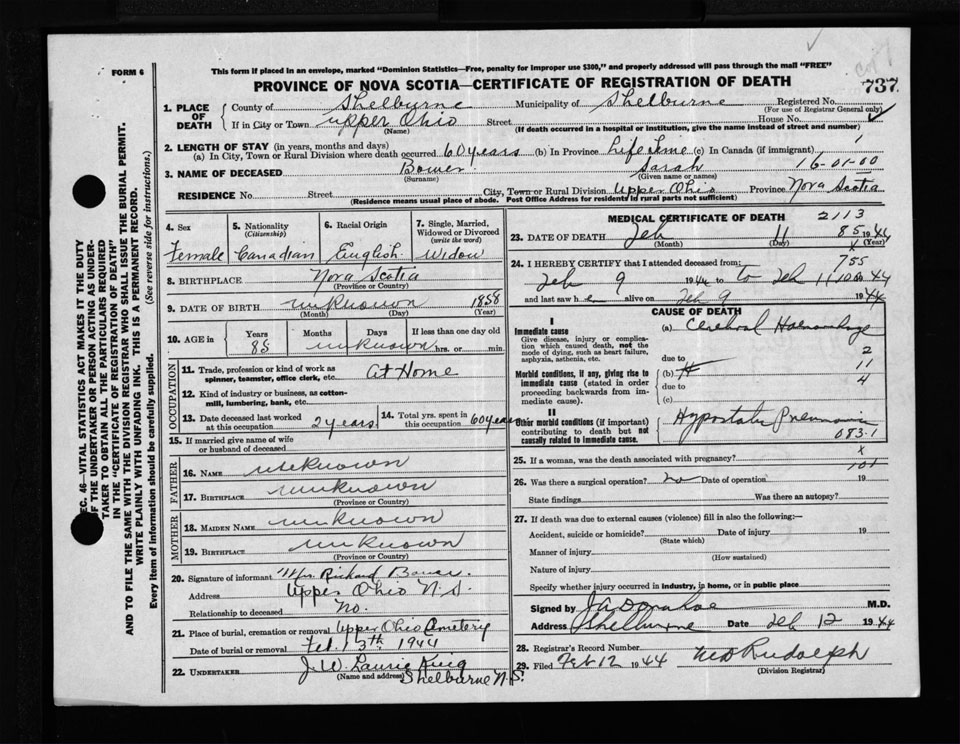 FORM 6
This form if placed in an envelope, marked "Dominion Statistics—Free, penalty for improper use $300," and properly addressed will pass through the mail "FREE"
PROVINCE OF NOVA SCOTIA—CERTIFICATE OF REGISTRATION OF DEATH
737
1. PLACE OF DEATH
County of Shelburne Municipality of Shelburne Registered No.
(For use of Registrar General only)
If in City or Town Upper Ohio Street House No.
(Name) (If death occurred in a hospital or institution, give the name instead of street and number)
2. LENGTH OF STAY (in years, months and days)
(a) In City, Town or Rural Division where death occurred 60 years (b) In Province Life time (c) In Canada (if immigrant) 1
3. NAME OF DECEASED Bower Sarah 16-01-00
(Surname) (Given name or names)
RESIDENCE No. Street City, Town or Rural Division Upper Ohio Province Nova Scotia
(Residence means usual place of abode. Post Office Address for residents in rural parts not sufficient)
SEC. 46—VITAL STATISTICS ACT MAKES IT THE DUTY
OF THE UNDERTAKER OR PERSON ACTING AS UNDER-
TAKER TO OBTAIN ALL THE PARTICULARS REQUIRED
IN THE "CERTIFICATE OF REGISTRATION OF DEATH"
AND TO FILE THE SAME WITH THE DIVISION REGISTRAR WHO SHALL ISSUE THE BURIAL PERMIT.
WRITE PLAINLY WITH UNFADING INK. THIS IS A PERMANENT RECORD.
Every item of information should be carefully supplied. (See reverse side for instructions.)
4. Sex
Female
5. Nationality
(Citizenship)
Canadian
6. Racial Origin
English
7. Single, Married,
Widowed or Divorced
(write the word)
Widow
8. BIRTHPLACE Nova Scotia
(Province or Country)
9. DATE OF BIRTH unknown 1858
(Month) (Day) (Year)
10. AGE in
Years Months Days If less than one day old
85 unknown hrs. or min.
OCCUPATION
11. Trade, profession or kind of work as
spinner, teamster, office clerk, etc. At Home
12. Kind of industry or business, as cotton-
mill, lumbering, bank, etc.
13. Date deceased last worked
at this occupation 2 years
14. Total yrs. spent in
this occupation 60 years
15. If married give name of wife
or husband of deceased
FATHER
16. NAME unknown
17. BIRTHPLACE unknown
(Province or Country)
MOTHER
18. MAIDEN NAME unknown
19. BIRTHPLACE unknown
(Province or Country)
20. Signature of informant Mrs. Richard Bower
Address Upper Ohio N.S.
Relationship to deceased No.
21. Place of burial, cremation or removal Upper Ohio Cemetery
Date of burial or removal Feb. 13th 1944
22. UNDERTAKER J. W. Laurie King
(Name and address) Shelburne N.S.
MEDICAL CERTIFICATE OF DEATH 2113
23. DATE OF DEATH Feb 11 1944
85
(Month) (Day) (Year)
x
24. I HEREBY CERTIFY that I attended deceased from: 755
Feb 9 1944 to Feb 11 1944
and last saw h e alive on Feb 9 1944
CAUSE OF DEATH
I
Immediate cause
Give disease, injury or complica-
tion which caused death, not the
mode of dying, such as heart failure,
asphyxia, asthenia, etc.
(a) Cerebral Haemorrhage
due to
Morbid conditions, if any, giving rise to
immediate cause (stated in order
proceeding backwards from im-
mediate cause).
(b)
due to
(c)
2
11
4
II
Other morbid conditions (if important)
contributing to death but not
causally related to immediate cause.
Hypostatic Pneumonia
083.1
x
25. If a woman, was the death associated with pregnancy?
101
26. Was there a surgical operation? no Date of operation 19
State findings Was there an autopsy?
27. If death was due to external causes (violence) fill in also the following:—
Accident, suicide or homicide? Date of injury 19
(State which)
Manner of injury
(How sustained)
Nature of injury
Specify whether injury occurred in industry, in home, or in public place
Signed by J A Donahoe M.D.
Address Shelburne Date Feb 12 1944
28. Registrar's Record Number
29. Filed Feb 12 1944 Rudolph
(Division Registrar)